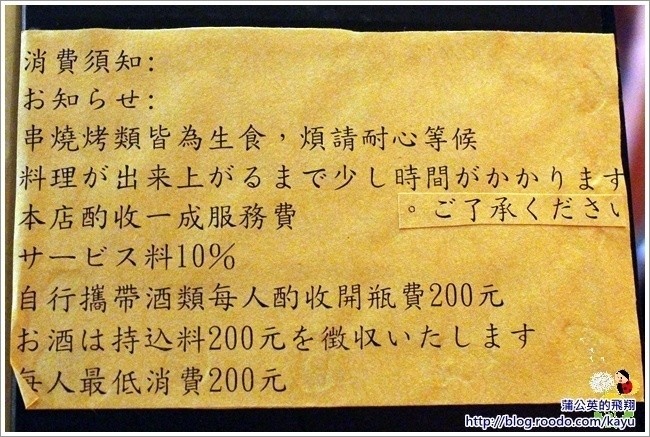 消費須知:
お知らせ:
串燒烤類皆為生食，煩請耐心等候
料理が出来上がるまで少し時間がかかります
。ご了承ください
本店酌收一成服務費
サービス料10%
自行攜帶酒類每人酌收開瓶費200元
お酒は持込料200元を徴収いたします
每人最低消費200元
蒲公英的飛翔
http://blog.roodo.com/kayu